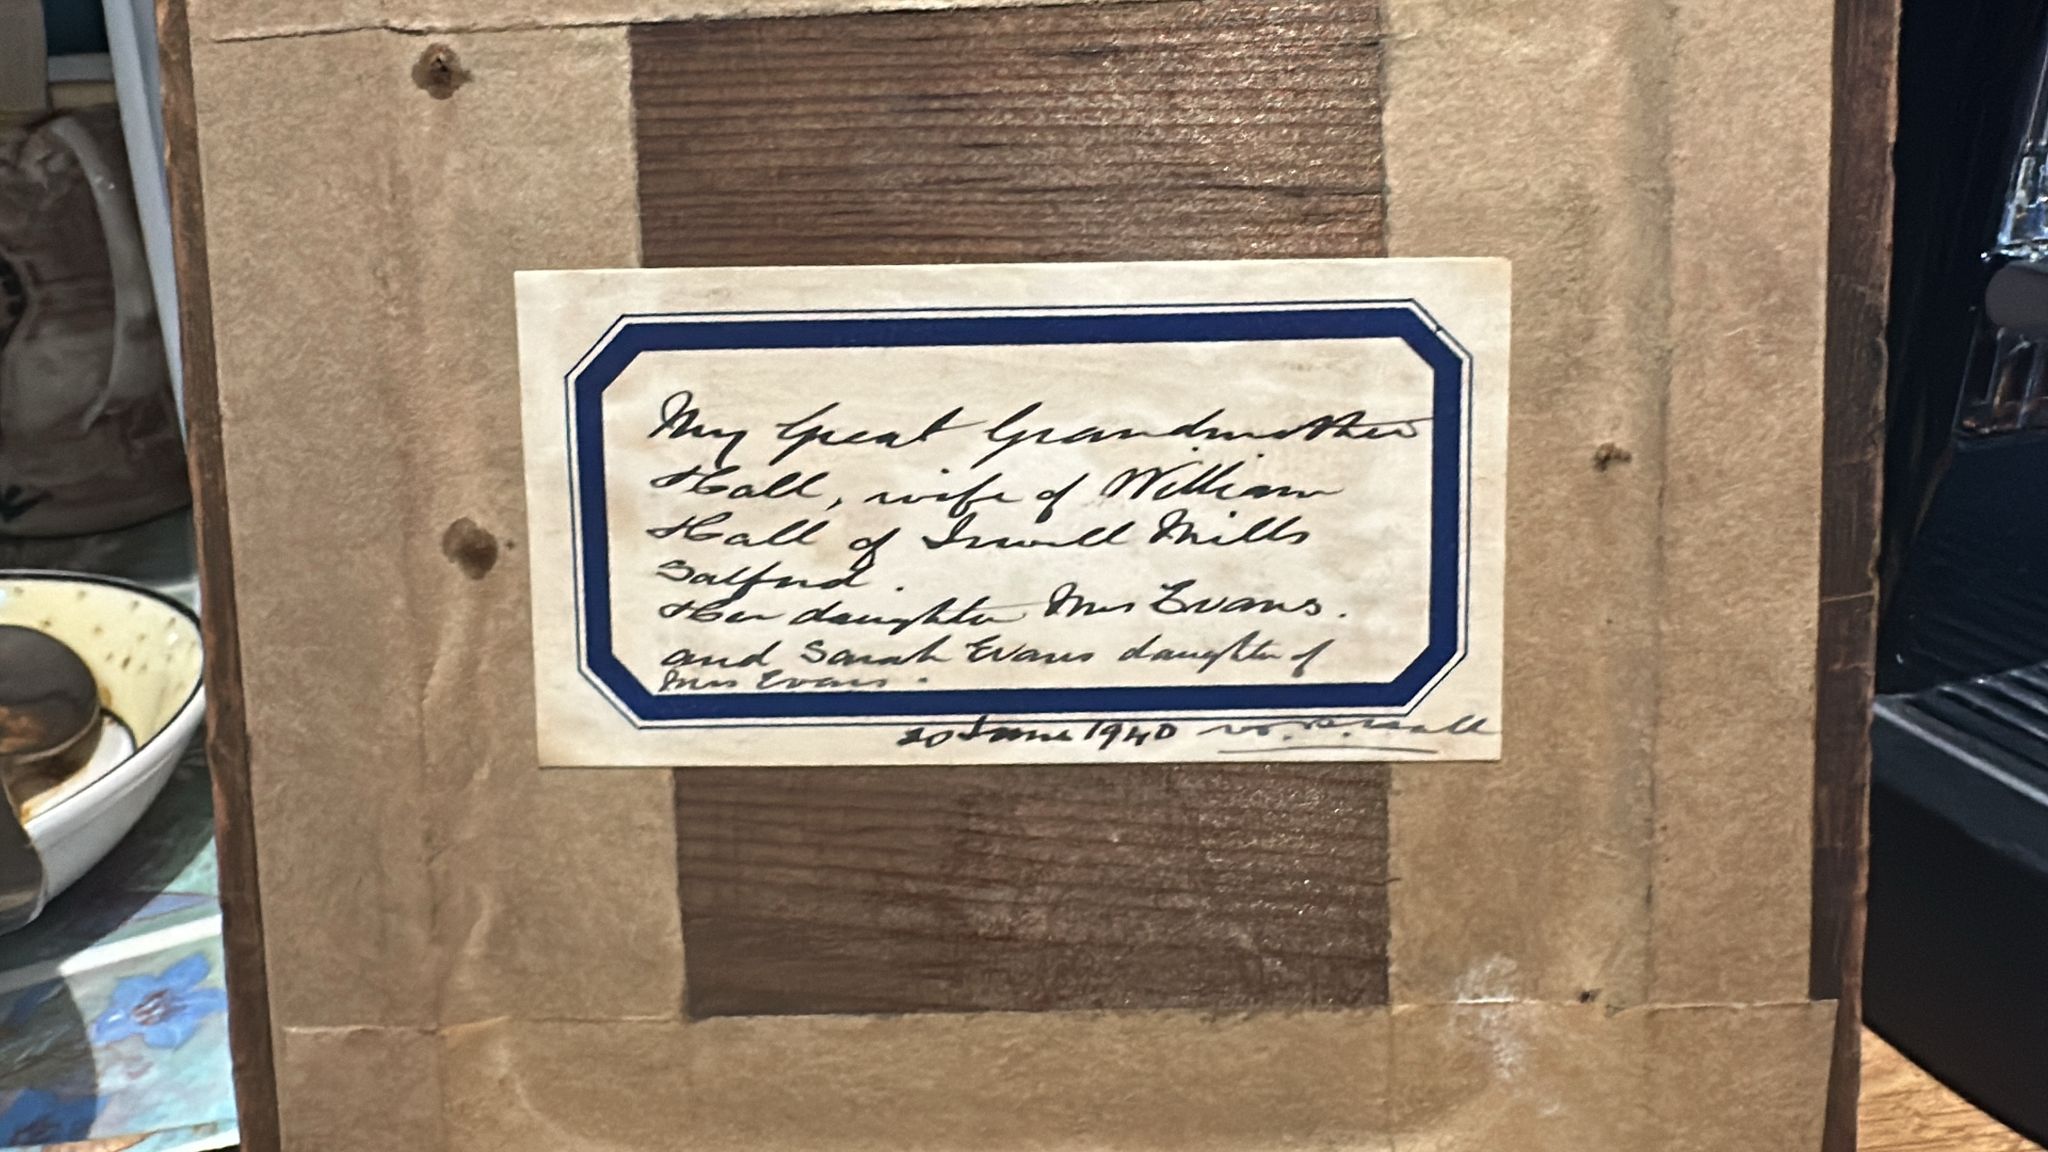 My Great Grandmother
Hall, wife of William
Hall of Irwell Mills
Salford.
Her daughter Mrs Evans.
and Sarah Evans daughter of
Mrs Evans.
20 June 1940